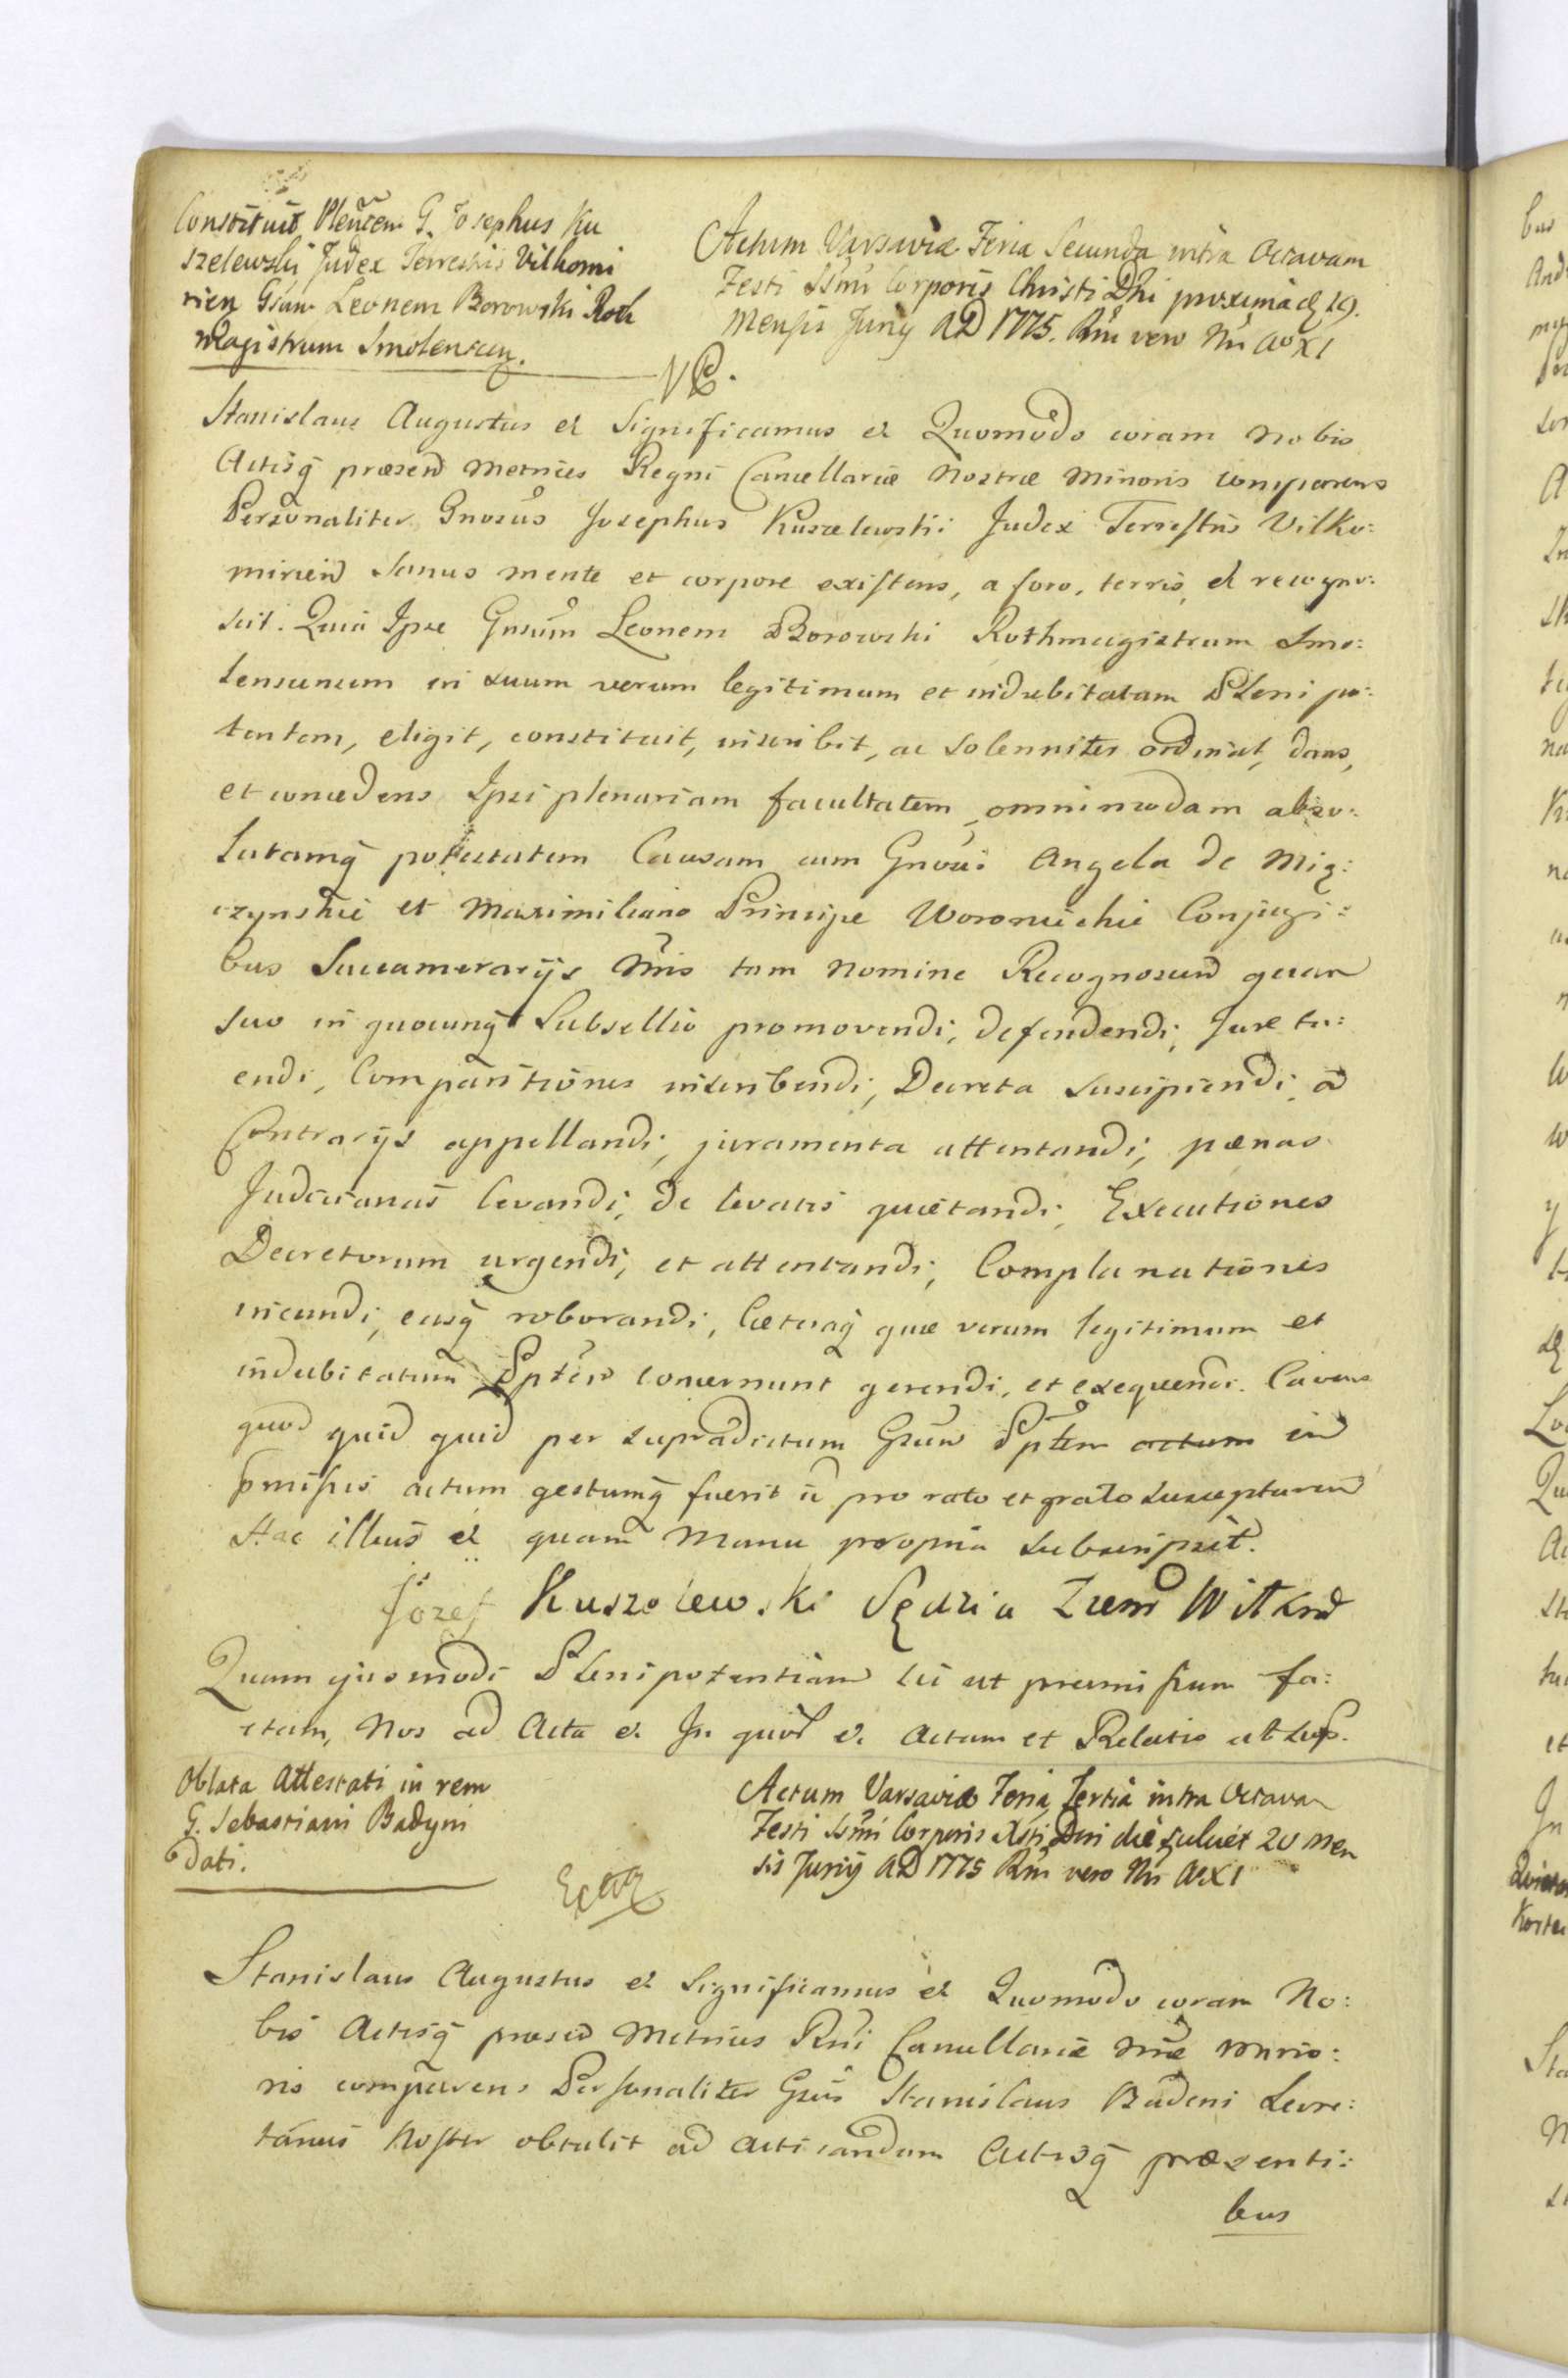 Constituit Plenten G. Josephus Ku
szelewski Judex Terrestris Vilkomi
rien Gsum Leonem Borowski Roth
magistrum Smolenscen.
Actum Varsaviæ Feria Secunda intra Octavam
Festi SSmi Corporis Christi Dni proxima d 19.
Mensis Junij AD 1775. Rni vero Nri Ao XI
Stanislaus Augustus et Significamus et Quomodo coram nobis
Actisq præsend Metrices Regni Cancellariæ Nostræ Minoris comparens
Personaliter Gnosus Josephus Kuszelewski Judex Terrestris Vilko:
miriend Sanus mente et corpore existens, a foro, terris, et recogno:
scit. Quia Ipse Gnsum Leonem Borowski Rothmagistrum Smo:
lensunum in suum verum legitimum et indubitatam Plenipo:
tentem, eligit, constituit, inscribit, ac solenniter ordinat, dans,
et concedens Ipsi plenariam facultatem, omnimodam abso:
lutamq potestatem Causam cum Gnosi Angela de Mią:
czynskie et Maximiliano Principe Woronieckie Conjugi:
bus Succamerarijs Nris tam nomine Recognoscend quam
suo in quocunq Subsellio promovendi, defendendi, Jure tu:
endi, Comparitiones inscribendi, Decreta suscipiendi, a
Contrarijs appellandi, juramenta attentandi, pænas
Judicianas levandi, de levatis quietandi, Executiones
Decretorum urgendi, et attentandi, Complanationes
ineundi, easq roborandi, Cæteraq quæ verum legitimum et
indubitatum Ppten concernunt gerendi, et exequendi. Cavens
quod quid quid per supradictum Gsum Ppten actum in
præmissis actum gestumq fuerit id pro rato et grato suscepturum
Hac illius et quam Manu propria subscripsit.
Józef Kuszelewski Sędzia Ziem Wiłkm
Quam ejusmodi Plenipotentiam sic ut præmissum fa:
ctam, Nos ad Acta et In quor et Actum et Relatio ut sup.
Oblata Attestati in rem
G. Sebastiani Badyni
dati.
Actum Varsaviæ Feria Tertia intra Octavam
Festi SSmi Corporis Xsti Dni die scilicet 20 Men
sis Junij AD 1775 Rni vero Nri Ao XI
Stanislaus Augustus et Significamus et Quomodo coram No:
bis Actisq præsend Metrices Rni Cancellariæ Nræ Mino:
ris comparens Personaliter Gsus Stanislaus Badeni Secre:
tarius Noster obtulit ad acticandum Actisq præsenti:
bus